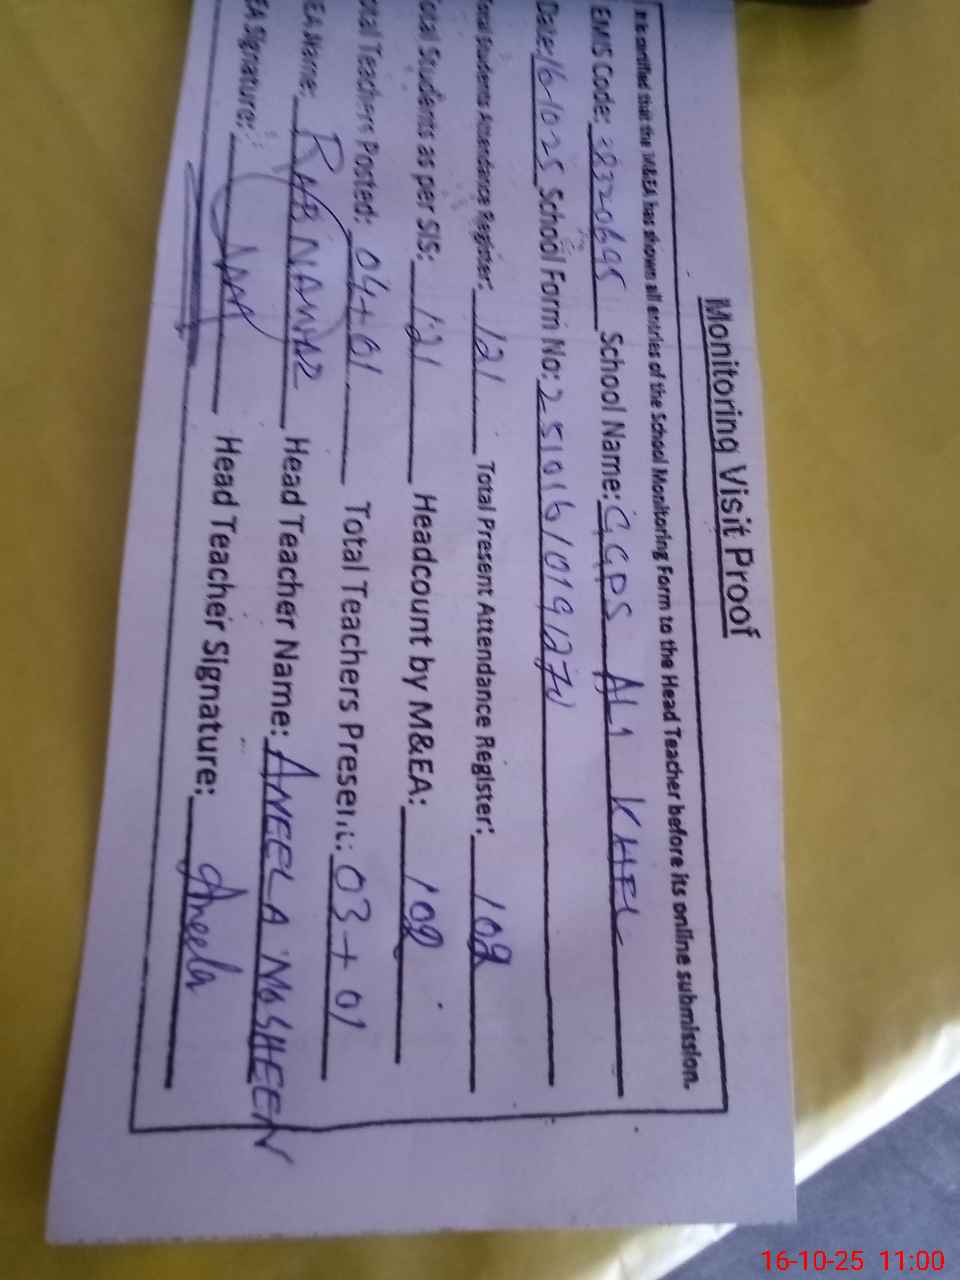 Monitoring Visit Proof
It is certified that the M&EA has shown all entries of the School Monitoring Form to the Head Teacher before its online submission.
EMIS Code: 38320645 School Name: GGPS ALI KHEL
Date: 16-10-25 School Form No: 251016101912
Total Students Attendance Register: 121 Total Present Attendance Register: 102
Total Students as per SIS: 121 Headcount by M&EA: 102
otal Teachers Posted: 04+01 Total Teachers Present: 03+01
EA Name: RAB NAWAZ Head Teacher Name: ANEELA NOSHEEN
EA Signature: Head Teacher Signature: Aneela
16-10-25 11:00